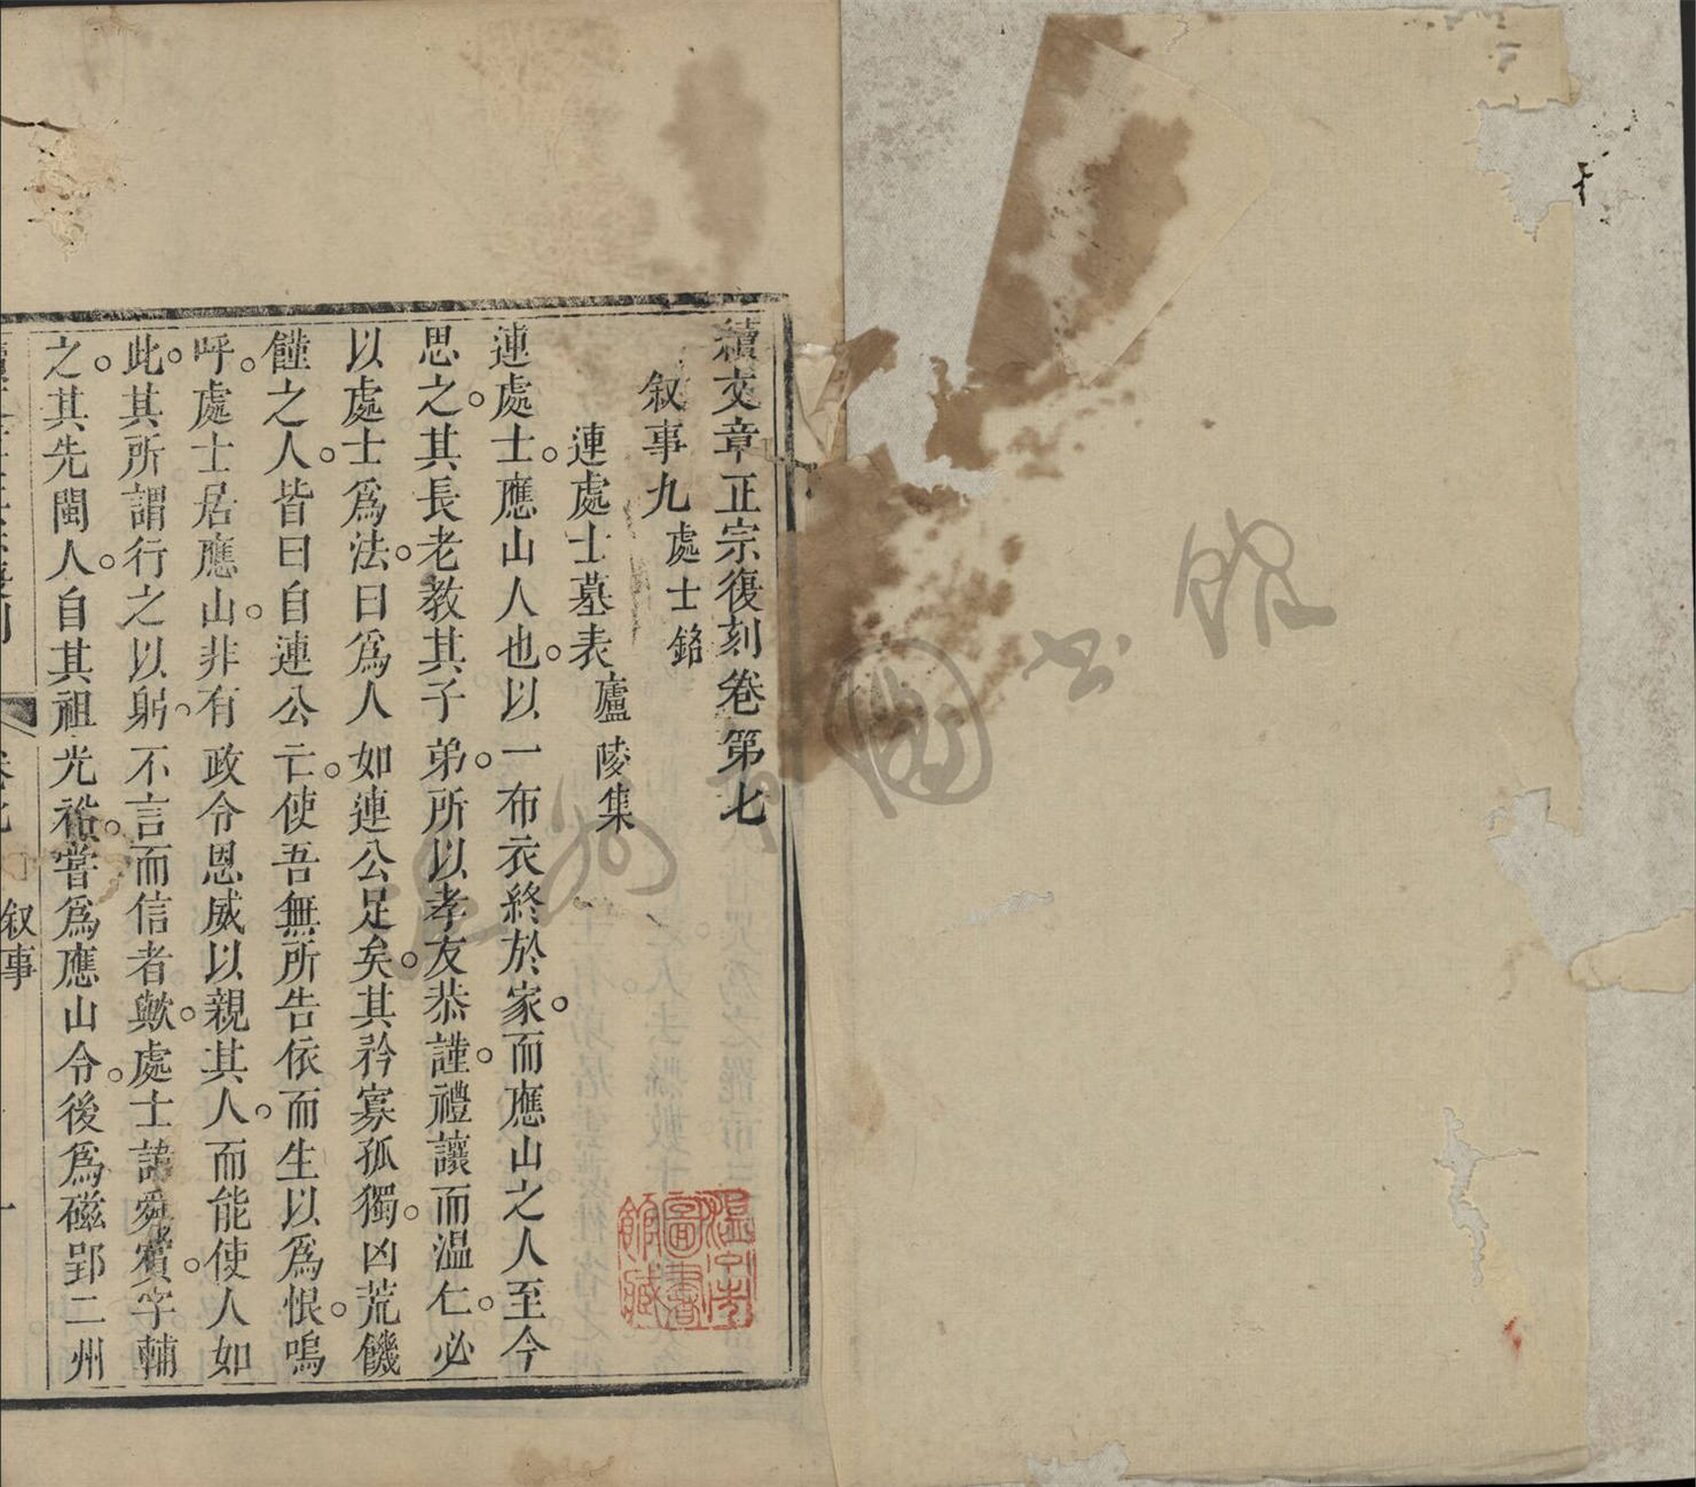 續文章正宗復刻卷第七
叙事九處士銘
連處士墓表廬陵集
連處士。應山人也。以一布衣終於家。而應山之人至今
思之。其長老教其子弟。所以孝友恭謹。禮讓而温仁。必
以處士爲法。曰爲人如連公足矣。其矜寡孤獨。凶荒饑
饉之人。皆曰自連公亡。使吾無所告依而生以爲恨。嗚
呼。處士居應山。非有政令恩威以親其人。而能使人如
此。其所謂行之以躬。不言而信者歟。處士諱舜賓。字輔
之。其先閩人。自其祖光裕。嘗爲應山令。後爲磁郢二州
叙事
温州市
圖書
館藏
温州市圖书馆